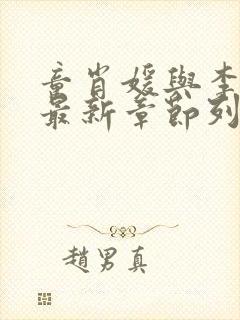 童肖媛與李
最新章節列
趙男真